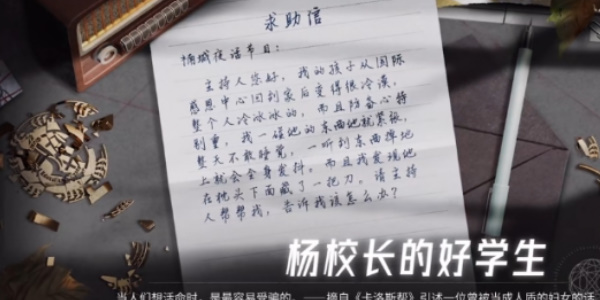 求助信
情城夜话节目：
主持人您好，我的孩子从国际
感恩中心回到家后变得很冷漠，
整个人冷冰冰的，而且防备心特
别重，我一碰他的东西他就紧张，
整天不能睡觉，一听到东西掉地
上就会全身发抖，而且我发现他
在枕头下面藏了一把刀。请主持
人帮帮我，告诉我该怎么办？
杨校长的好学生
当人们想活命时，是最容易受骗的。——摘自《卡洛斯帮》引述一位曾被当成人质的妇女的话